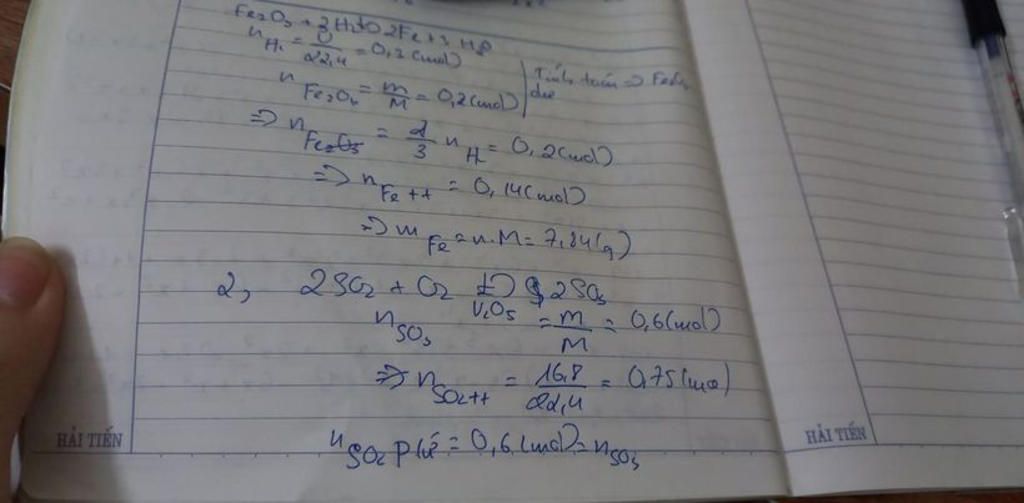 Fe₂O₃ + 3H₂ t° 2Fe + 3H₂O
n H₂ = /22,4 = 0,3 (mol)
n Fe₂O₃ = m/M = 0,2 (mol) | Tính toán => Fe₂O₃ dư
=> n Fe = 2/3 n H₂ = 0,2 (mol)
=> n Fe tt = 0,14 (mol)
=> m Fe = n.M = 7,84 (g)
2, 2SO₂ + O₂ t° V₂O₅ 2SO₃
n SO₃ = m/M = 0,6 (mol)
=> n SO₂ tt = 16,8/22,4 = 0,75 (mol)
n SO₂ p/ứ = 0,6 (mol) = n SO₃
HẢI TIẾN
HẢI TIẾN